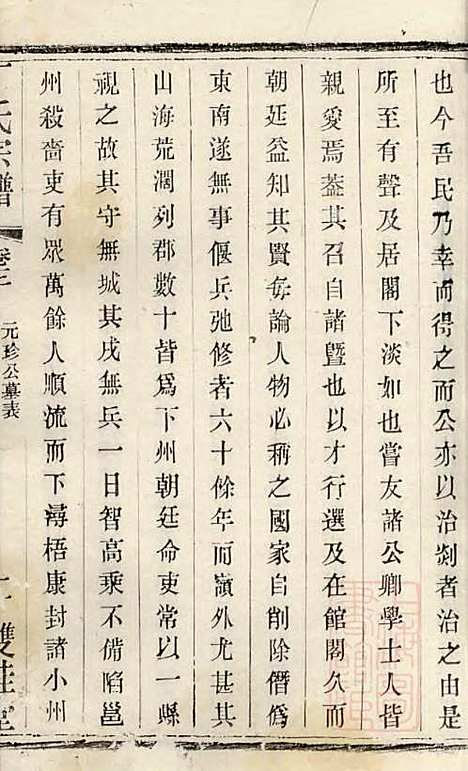 也今吾民乃幸而得之而公亦以治剡者治之由是
所至有聲及居閣下淡如也嘗友諸公卿學士人皆
親愛焉葢其召自諸暨也以才行選及在館閣久而
朝廷益知其賢每論人物必稱之國家自削除僭偽
東南遂無事偃兵弛修者六十餘年而嶺外尤甚其
山海荒濶列郡數十皆爲下州朝廷命吏常以一縣
視之故其守無城其戍無兵一日智高乘不備陷邕
州殺啬吏有眾萬餘人順流而下潯梧康封諸小州
氏宗譜
卷三
元珍公墓表
雙桂堂